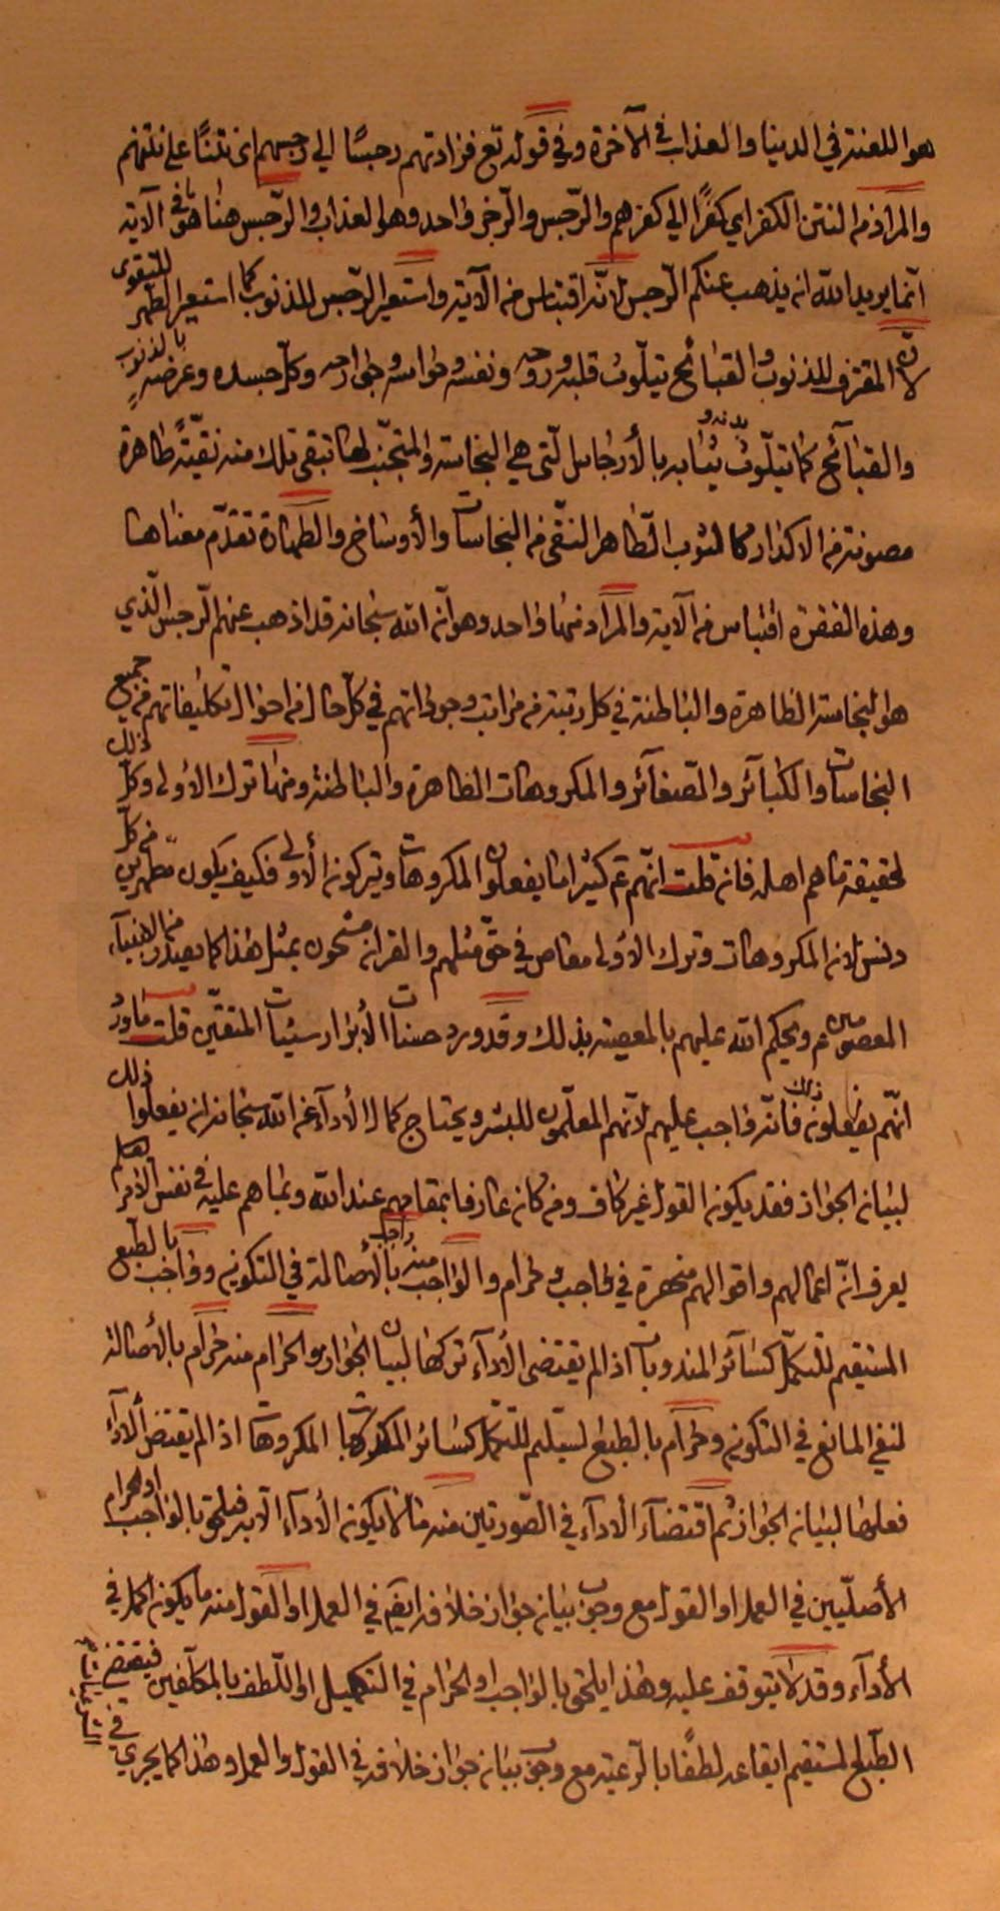 هو اللعنة في الدنيا والعذاب في الآخرة وفي قوله تع فزادتهم رجسًا الي رجسهم اى نتنًا على نتنهم
والمراد من النتن الكفر اي كفرًا الي كفرهم والرّجس والرّجز واحد وهو العذاب والرّجس هنا هو ما في الآية
انّما يريد الله ان يذهب عنكم الرّجس لانّه اقتباس من الآية واستعير الرّجس للذنوب كما استعير الطّهر للتّقوى
لانّ المقترف للذنوب والقبائح يتلّوث قلبه وروحه ونفسه وحواسه وجوارحه وكلّ جسده وعرضه بالذنوب
والقبآئح كما يتلّوث بدنه و ثيابه بالأرجاس الّتى هي النجاسة والمتجنّب لها تبقى تلك منه نقيّةً طاهرة
مصونة من الاكدار كالثوب الطّاهر النّقى من النجاسات والأوساخ والطهارة تقدّم معناها
وهذه الفقرة اقتباس من الآية والمراد منهما واحد وهو انّ الله سبحانه قد اذهب عنهم الّرجس الّذي
هو النجاسة الظاهرة والباطنة في كل رتبة من مراتب وجوداتهم في كلّ حال من احوال تكليفاتهم من جميع
النجاسات والكبآئر والصّغآئر والمكروهات الظاهرة والباطنة ومنها ترك الاولى وكلّ ذلك
لحقيقة ما هم اهله فان قلت انّهم ع كثيرًا ما يفعلون المكروهات ويتركون الأولى فكيف يكون مطّهرين من كلّ
دنس لان المكروهات وترك الاولى معاصٍ في حقّ مثلهم والقران مشحون بمثل هذا كما يعيّر الانبيآء
المعصومين ع ويحكم الله عليهم بالمعصية بذلك وقد ورد حسنات الأبرار سيئات المقرّبين قلت ما ورد
انّهم يفعلون ذلك فانّه واجب عليهم لانّهم المعلّمون للبشر ويحتاج كمال الأدآء عن الله سبحانه ان يفعلوا ذلك
لبيان الجواز فقد يكون القول غير كاف ومن كان عارفا بمقامهم عند الله وبما هم عليه في نفس الأمر
يعرف انّ اعمالهم واقوالهم منحصرة في واجب وحرام والواجب منه واجب بالأصالة في التكوين وواجب بالطبع
المستقيم للتكمّل كسآئر المندوبات اذا لم يقتضى الأدآء تركها لبيان الجواز والحرام منه حرام بالأصالة
لنفي المانع في التكوين وحرام بالطبع السّليم للتّكمّل كسائر المكروهات اذا لم يقتض الأدآء
فعلها لبيان الجواز ثم اقتضآء الأدآء في الصّورتين منه ما لا يكون الأدآء الّا به فيلحق بالواجب او الحرام
الأصليّين في العمل او القول مع وجوب بيان جواز خلافه ايضًا في العمل او القول منه ما يكون اكمل في
الأدآء وقد لا يتوقف عليه وهذا يلحق بالواجب او الحرام في التكميل او اللّطف بالمكلّفين فيقتضي
الطّبع المستقيم ايقاعه لطفًا بالرّعية مع وجوب بيان جواز خلافه في القول والعمل وهذا كما يجري في